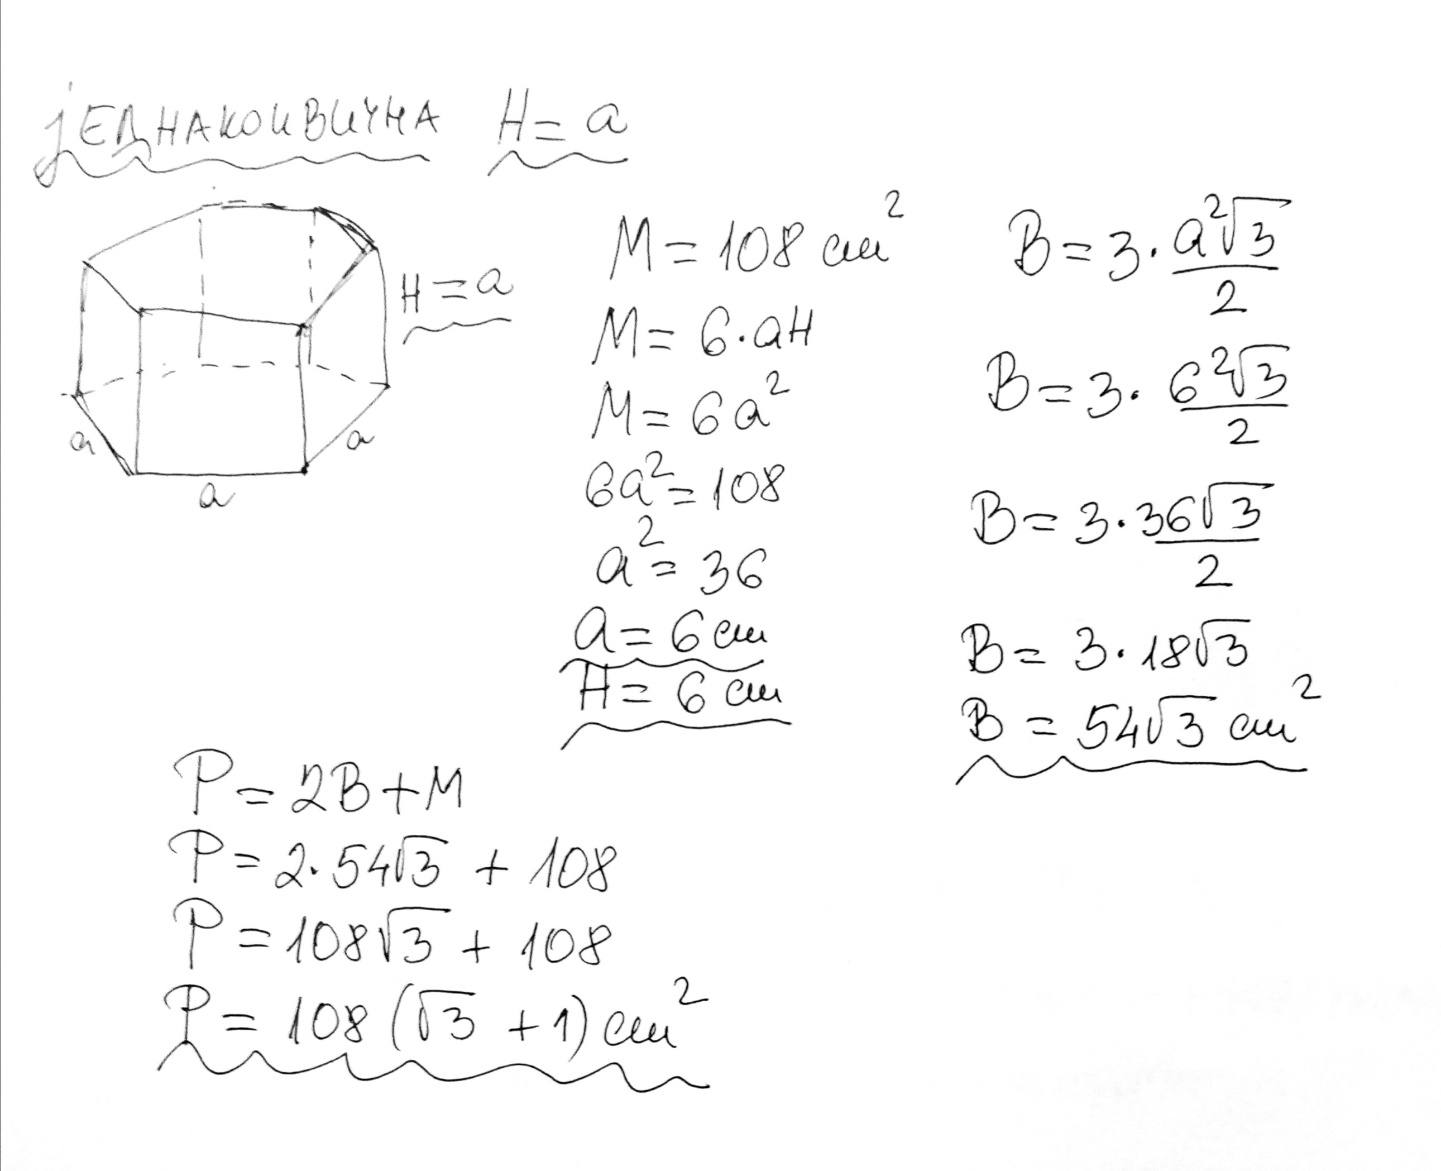 јЕДНАКОИВИЧНА H = a
H = a
a
a
a
M = 108 cm²
M = 6·aH
M = 6a²
6a² = 108
a² = 36
a = 6 cm
H = 6 cm
B = 3· a²√3/2
B = 3· 6²√3/2
B = 3· 36√3/2
B = 3· 18√3
B = 54√3 cm²
P = 2B + M
P = 2·54√3 + 108
P = 108√3 + 108
P = 108 (√3 + 1) cm²